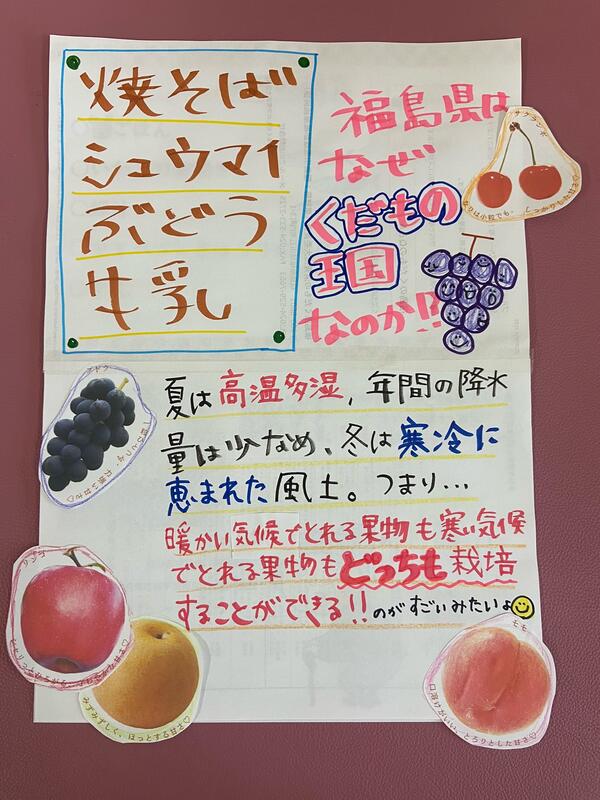 焼そば
シュウマイ
ぶどう
牛乳
福島県は
なぜ
くだもの
王国
なのか!?
サクランボ
ブドウ
夏は高温多湿、年間の降水
量は少なめ、冬は寒冷に
恵まれた風土。つまり…
暖かい気候でとれる果物も寒い気候
でとれる果物もどっちも栽培
することができる!!のがすごいみたいよ
リンゴ
みずみずしく、ほっとする甘さ♡
もも
口溶けがいい、とろりとした甘さ♡